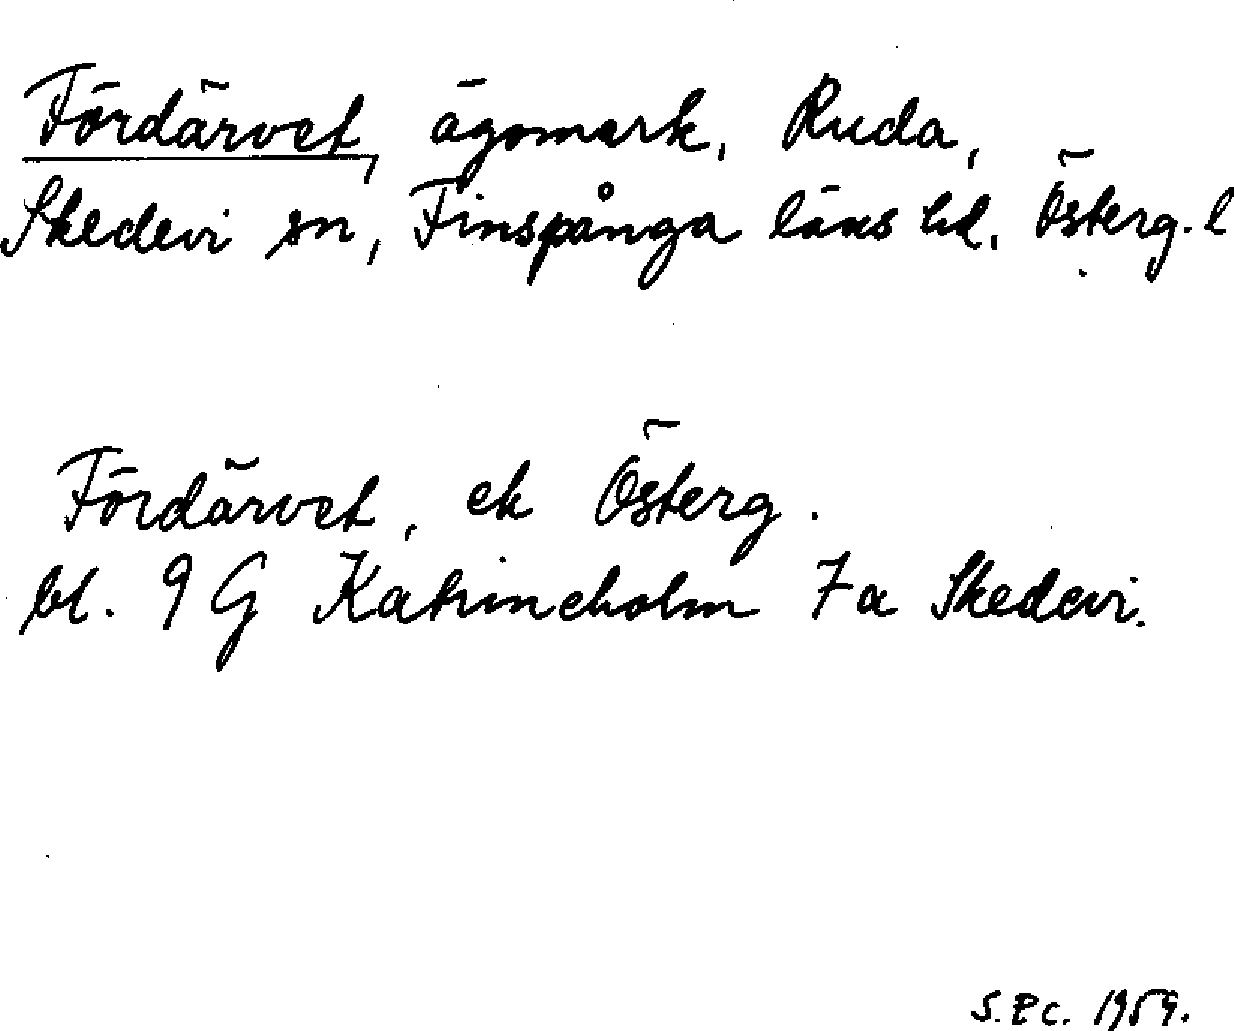 Fördärvet, ägomark, Ruda,
Skedevi sn, Finspånga läns hd. Österg. l
Fördärvet, ek Österg.
bl. 9 G Katrineholm 7a Skedevi.
1959.